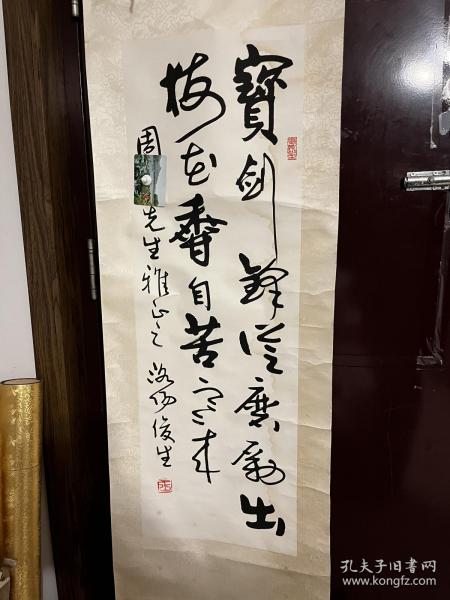 寶劍鋒從磨勵出
梅花香自苦寒来
周
先生雅正之 洛陽俊生
孔夫子旧书网
www.kongfz.com